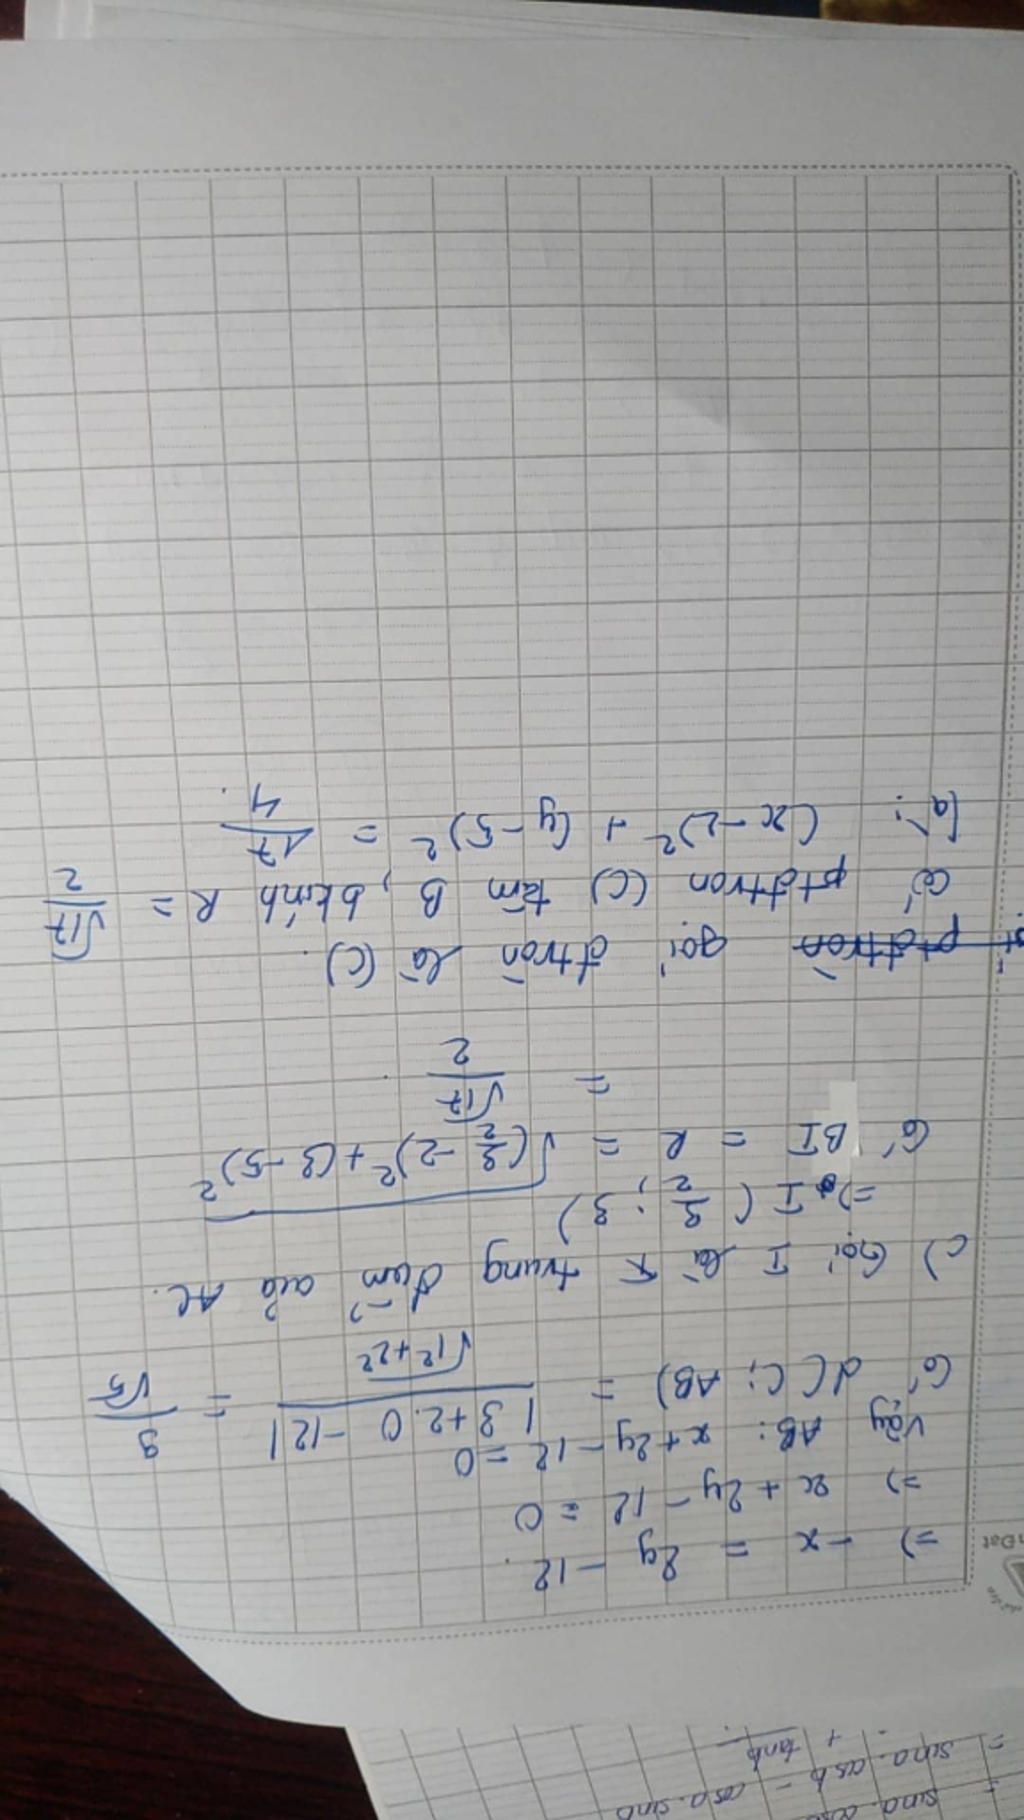 => -x = 2y - 12.
=> x + 2y - 12 = 0
Vậy AB: x + 2y - 12 = 0
Có d(C; AB) = |3 + 2.0 - 12| / √(1² + 2²) = 9/√5
c) Gọi I là trung điểm của AC.
=> I (3/2; 3)
Có BI = R = √((3/2 - 2)² + (3 - 5)²)
= √17/2.
ptđtròn gọi đtròn là (C).
Có ptđtròn (C) tâm B, bkính R = √17/2
là: (x - 2)² + (y - 5)² = 17/4.
= sina.cosb - cosa.sinb
+ tanb